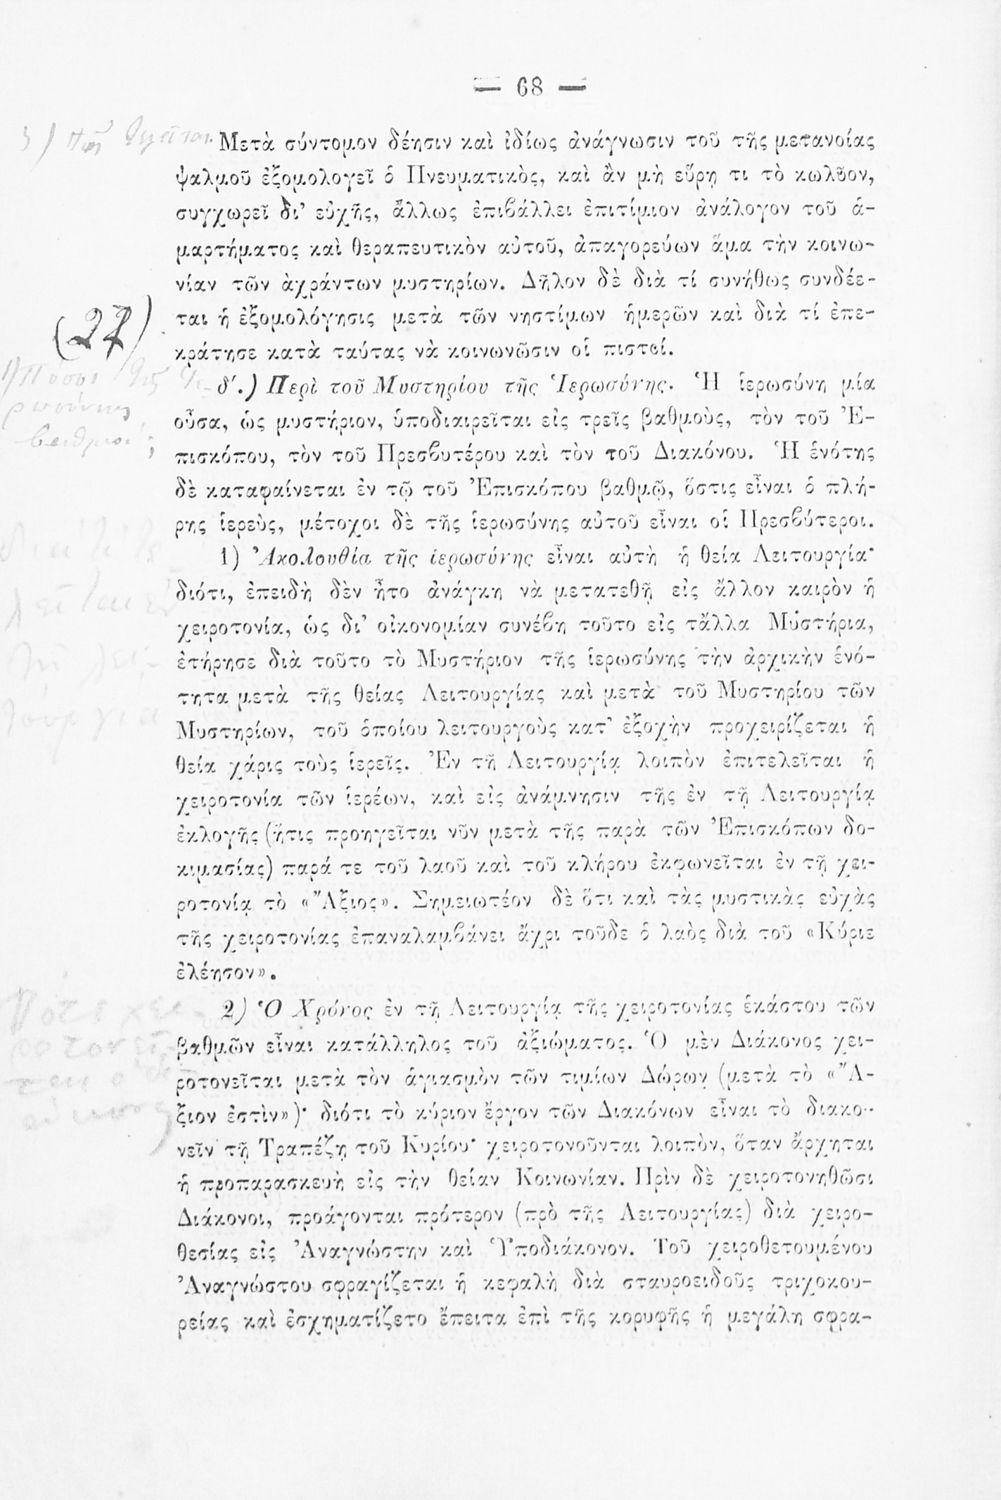 — 68 —
Μετὰ σύντομον δέησιν καὶ ἰδίως ἀνάγνωσιν τοῦ τῆς μετανοίας
ψαλμοῦ ἐξομολογεῖ ὁ Πνευματικὸς, καὶ ἂν μὴ εὕρῃ τι τὸ κωλῦον,
συγχωρεῖ δι' εὐχῆς, ἄλλως ἐπιβάλλει ἐπιτίμιον ἀνάλογον τοῦ ἁ-
μαρτήματος καὶ θεραπευτικὸν αὐτοῦ, ἀπαγορεύων ἅμα τὴν κοινω-
νίαν τῶν ἀχράντων μυστηρίων. Δῆλον δὲ διὰ τί συνήθως συνδέε-
ται ἡ ἐξομολόγησις μετὰ τῶν νηστίμων ἡμερῶν καὶ διὰ τί ἐπε-
(27)
κράτησε κατὰ ταύτας νὰ κοινωνῶσιν οἱ πιστοί.
1) Πόσοι τῆς Ἱε-
ρωσύνης
βαθμοί;
δ'.) Περὶ τοῦ Μυστηρίου τῆς Ἱερωσύνης. Ἡ ἱερωσύνη μία
οὖσα, ὡς μυστήριον, ὑποδιαιρεῖται εἰς τρεῖς βαθμοὺς, τὸν τοῦ Ἐ-
πισκόπου, τὸν τοῦ Πρεσβυτέρου καὶ τὸν τοῦ Διακόνου. Ἡ ἑνότης
δὲ καταφαίνεται ἐν τῷ τοῦ Ἐπισκόπου βαθμῷ, ὅστις εἶναι ὁ πλή-
ρης ἱερεὺς, μέτοχοι δὲ τῆς ἱερωσύνης αὐτοῦ εἶναι οἱ Πρεσβύτεροι.
1) Ἀκολουθία τῆς ἱερωσύνης εἶναι αὐτὴ ἡ θεία Λειτουργία·
διότι, ἐπειδὴ δὲν ἦτο ἀνάγκη νὰ μετατεθῇ εἰς ἄλλον καιρὸν ἡ
χειροτονία, ὡς δι' οἰκονομίαν συνέβη τοῦτο εἰς τἄλλα Μυστήρια,
ἐτήρησε διὰ τοῦτο τὸ Μυστήριον τῆς ἱερωσύνης τὴν ἀρχικὴν ἑνό-
τητα μετὰ τῆς θείας Λειτουργίας καὶ μετὰ τοῦ Μυστηρίου τῶν
Μυστηρίων, τοῦ ὁποίου λειτουργοὺς κατ' ἐξοχὴν προχειρίζεται ἡ
θεία χάρις τοὺς ἱερεῖς. Ἐν τῇ Λειτουργίᾳ λοιπὸν ἐπιτελεῖται ἡ
χειροτονία τῶν ἱερέων, καὶ εἰς ἀνάμνησιν τῆς ἐν τῇ Λειτουργίᾳ
ἐκλογῆς (ἥτις προηγεῖται νῦν μετὰ τῆς παρὰ τῶν Ἐπισκόπων δο-
κιμασίας) παρά τε τοῦ λαοῦ καὶ τοῦ κλήρου ἐκφωνεῖται ἐν τῇ χει-
ροτονίᾳ τὸ «Ἄξιος». Σημειωτέον δὲ ὅτι καὶ τὰς μυστικὰς εὐχὰς
τῆς χειροτονίας ἐπαναλαμβάνει ἄχρι τοῦδε ὁ λαὸς διὰ τοῦ «Κύριε
ἐλέησον».
Πότε χει-
ροτονεῖ-
ται ὁ δι-
άκονος
2) Ὁ Χρόνος ἐν τῇ Λειτουργίᾳ τῆς χειροτονίας ἑκάστου τῶν
βαθμῶν εἶναι κατάλληλος τοῦ ἀξιώματος. Ὁ μὲν Διάκονος χει-
ροτονεῖται μετὰ τὸν ἁγιασμὸν τῶν τιμίων Δώρων (μετὰ τὸ «Ἄ-
ξιον ἐστὶν»)· διότι τὸ κύριον ἔργον τῶν Διακόνων εἶναι τὸ διακο-
νεῖν τῇ Τραπέζῃ τοῦ Κυρίου· χειροτονοῦνται λοιπὸν, ὅταν ἄρχηται
ἡ προπαρασκευὴ εἰς τὴν θείαν Κοινωνίαν. Πρὶν δὲ χειροτονηθῶσι
Διάκονοι, προάγονται πρότερον (πρὸ τῆς Λειτουργίας) διὰ χειρο-
θεσίας εἰς Ἀναγνώστην καὶ Ὑποδιάκονον. Τοῦ χειροθετουμένου
Ἀναγνώστου σφραγίζεται ἡ κεφαλὴ διὰ σταυροειδοῦς τριχοκου-
ρείας καὶ ἐσχηματίζετο ἔπειτα ἐπὶ τῆς κορυφῆς ἡ μεγάλη σφρα-